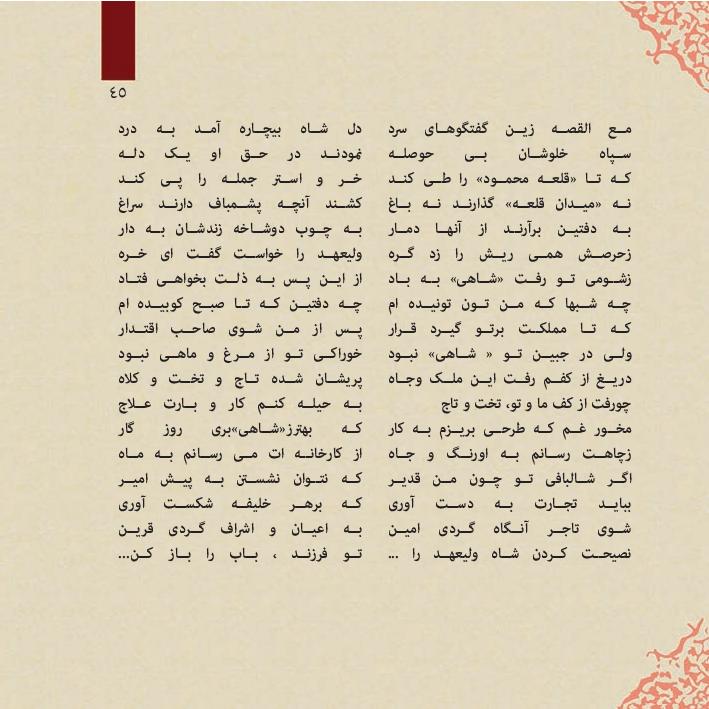 ٤٥
مع القصه زین گفتگوهای سرد دل شاه بیچاره آمد به درد
سپاه خلوشان بی حوصله نمودند در حق او یک دله
که تا «قلعه محمود» را طی کند خر و استر جمله را پی کند
نه «میدان قلعه» گذارند نه باغ کشند آنچه پشمباف دارند سراغ
به دفتین برآرند از آنها دمار به چوب دوشاخه زندشان به دار
زحرصش همی ریش را زد گره ولیعهد را خواست گفت ای خره
زشومی تو رفت «شاهی» به باد از این پس به ذلت بخواهی فتاد
چه شبها که من تون تونیده ام چه دفتین که تا صبح کوبیده ام
که تا مملکت برتو گیرد قرار پس از من شوی صاحب اقتدار
ولی در جبین تو « شاهی» نبود خوراکی تو از مرغ و ماهی نبود
دریغ از کفم رفت این ملک وجاه پریشان شده تاج و تخت و کلاه
چورفت از کف ما و تو، تخت و تاج به حیله کنم کار و بارت علاج
مخور غم که طرحی بریزم به کار که بهترز«شاهی»بری روز گار
زچاهت رسانم به اورنگ و جاه از کارخانه ات می رسانم به ماه
اگر شالبافی تو چون من قدیر که نتوان نشستن به پیش امیر
بباید تجارت به دست آوری که برهر خلیفه شکست آوری
شوی تاجر آنگاه گردی امین به اعیان و اشراف گردی قرین
نصیحت کردن شاه ولیعهد را ... تو فرزند ، باب را باز کن...